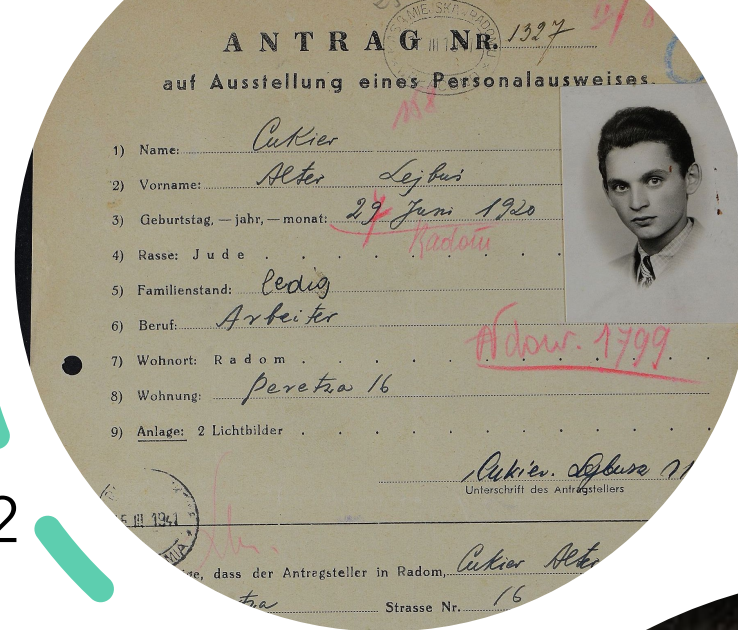 ANTRAG NR. 1327
auf Ausstellung eines Personalausweises.
1) Name: Cukier
2) Vorname: Alter Lejbuś
3) Geburtstag, — jahr, — monat: 29 Juni 1920
Radom
4) Rasse: Jude
5) Familienstand: ledig
6) Beruf: Arbeiter
7) Wohnort: Radom
1799
8) Wohnung: Peretza 16
9) Anlage: 2 Lichtbilder
Cukier
Unterschrift des Antragstellers
2
III 1941
dass der Antragsteller in Radom, Cukier Alter
Strasse Nr. 16